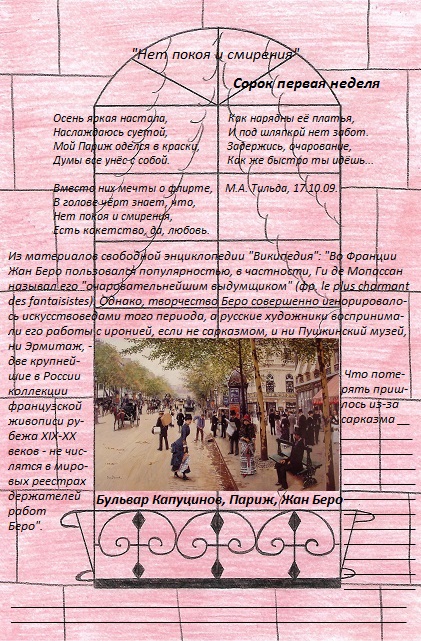 "Нет покоя и смирения"
Сорок первая неделя
Осень яркая настала,
Наслаждаюсь суетой,
Мой Париж оделся в краски,
Думы все унёс с собой.
Вместо них мечты о флирте,
В голове чёрт знает, что,
Нет покоя и смирения,
Есть какетство, да, любовь.
Как нарядны её платья,
И под шляпкрй нет забот.
Задержись, очарование,
Как же быстро ты идёшь...
М.А. Тильда, 17.10.09.
Из материалов свободной энциклопедии "Википедия": "Во Франции
Жан Беро пользовался популярностью, в частности, Ги де Мопассан
называл его "очаровательнейшим выдумщиком" (фр. le plus charmant
des fantaisistes). Однако, творчество Беро совершенно игнорировало-
сь искусствоведами того периода, а русские художники воспринима-
ли его работы с иронией, если не сарказмом, и ни Пушкинский музей,
ни Эрмитаж, -
две крупней-
шие в России
коллекции
французской
живописи ру-
бежа XIX-XX
веков - не чис-
лятся в миро-
вых реестрах
держателей
работ
Беро".
Что поте-
рять приш-
лось из-за
сарказма __
Бульвар Капуцинов, Париж, Жан Беро